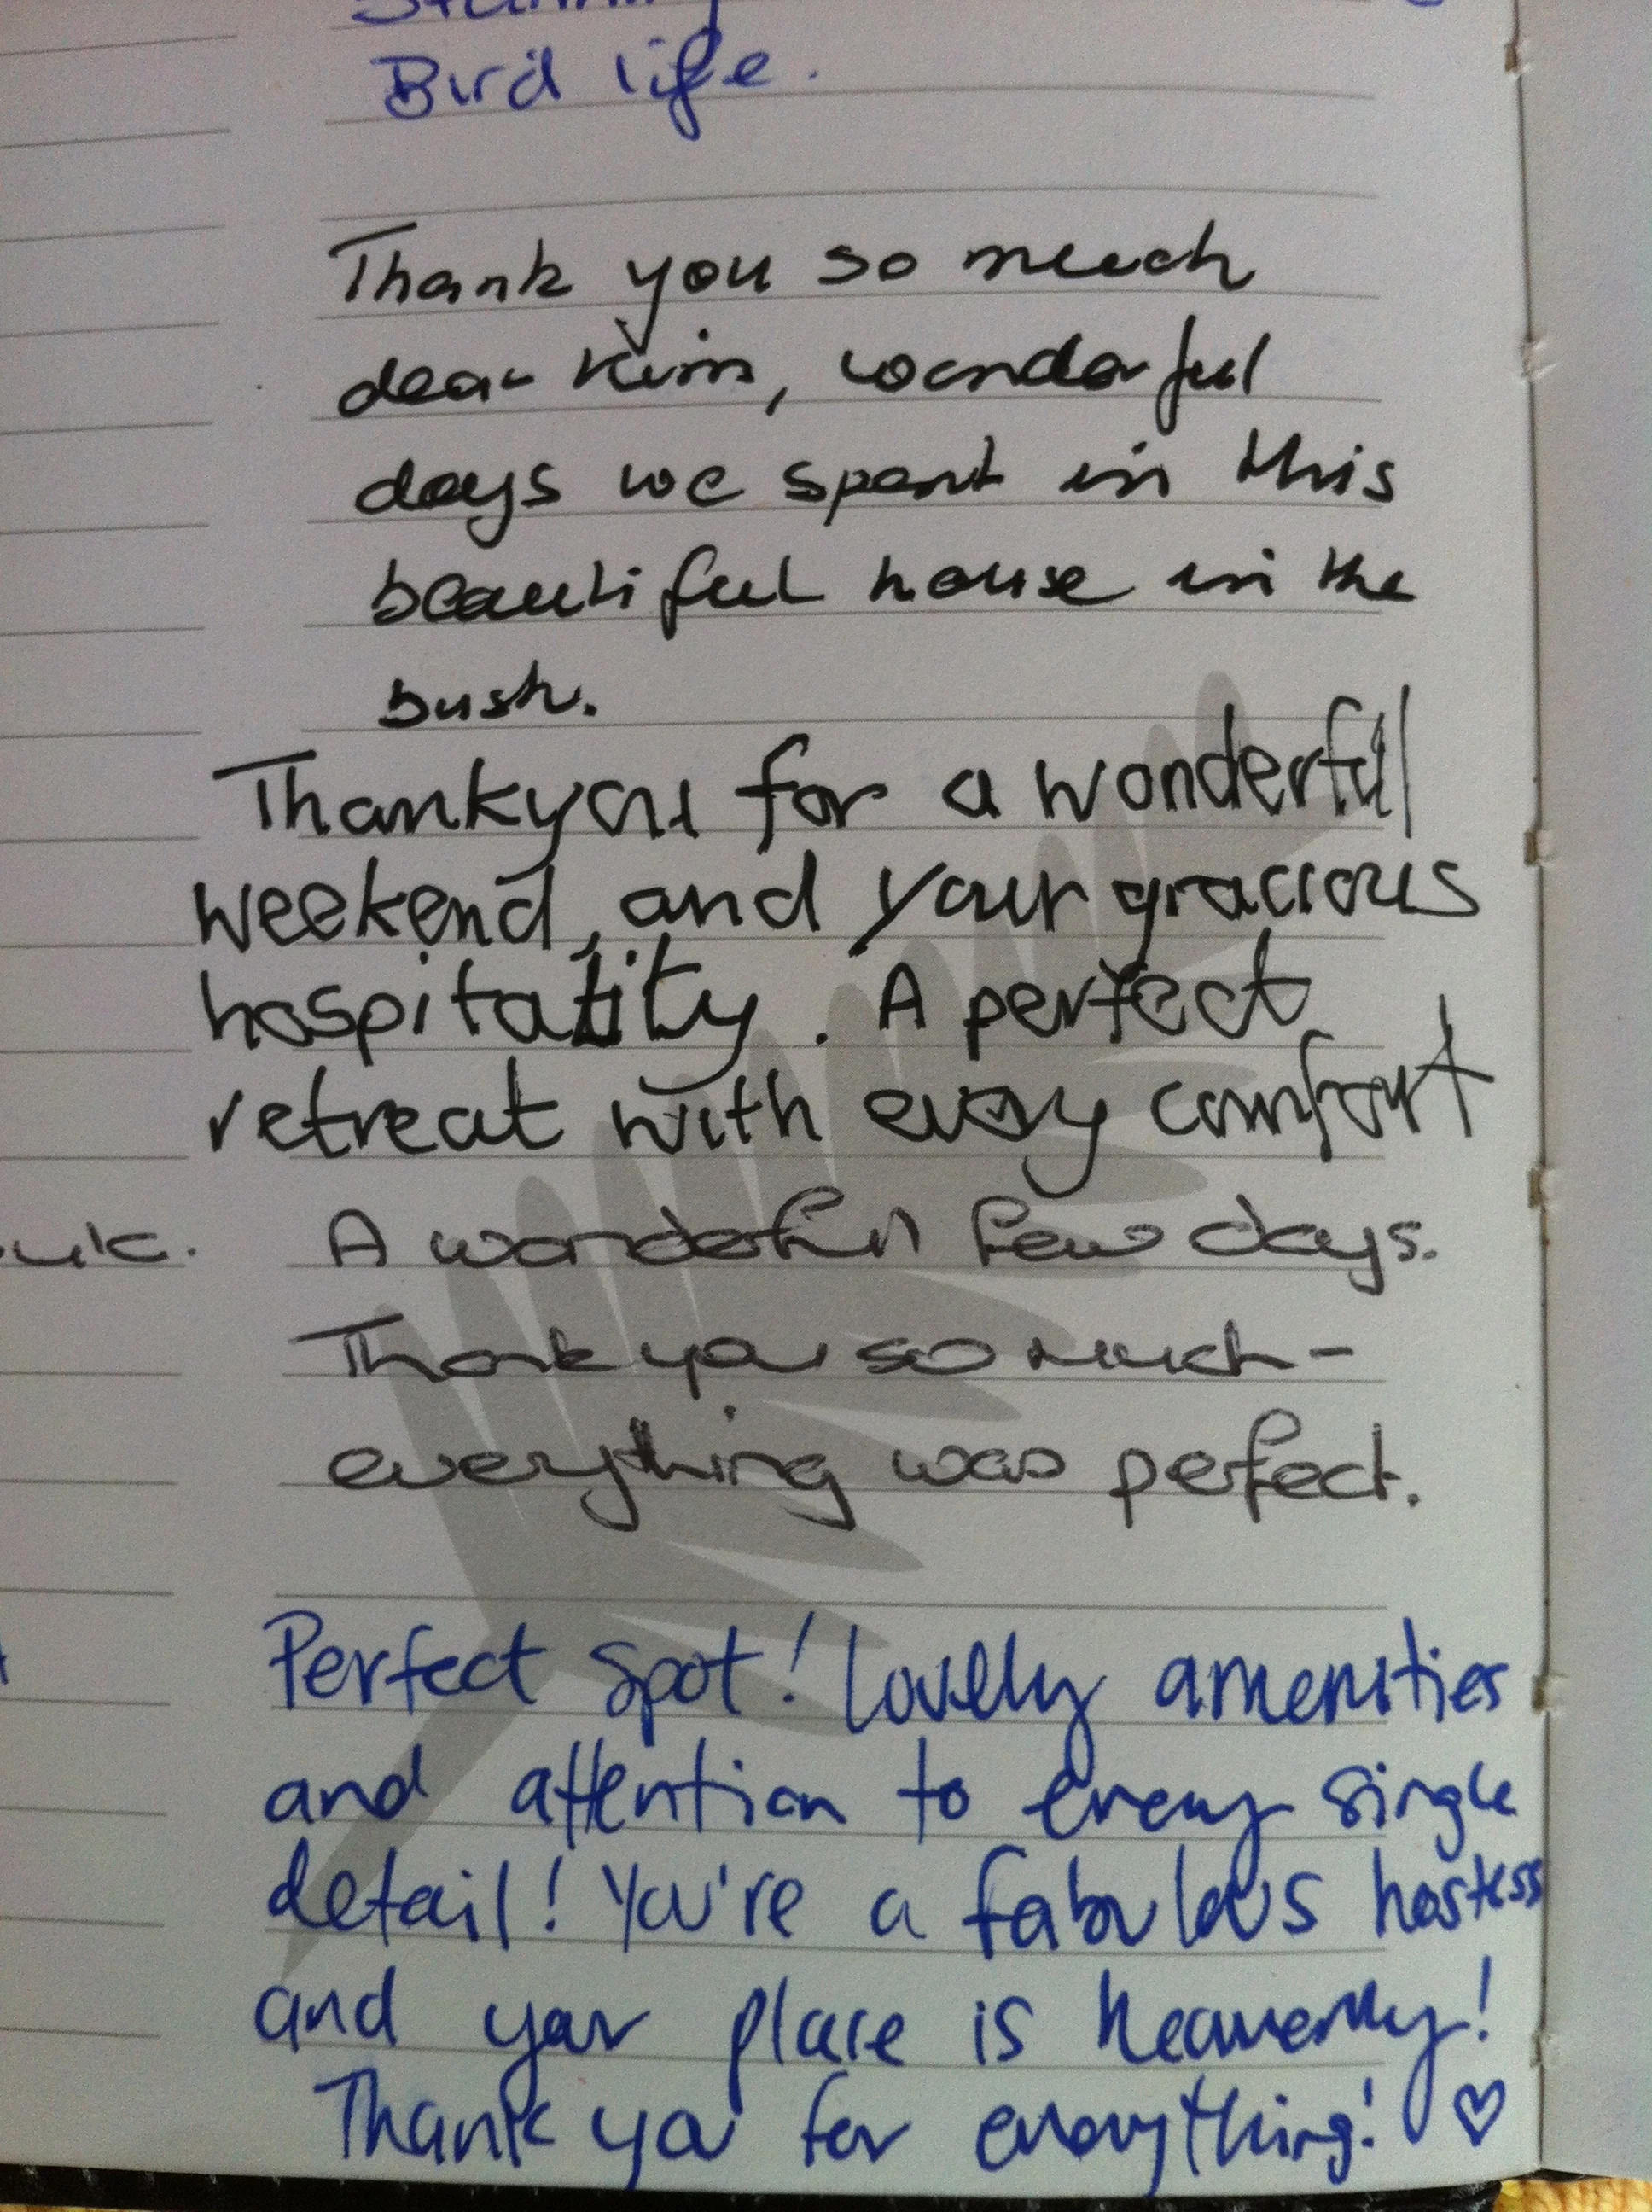 Bird life.
Thank you so much
dear Kim, wonderful
days we spent in this
beautiful house in the
bush.
Thankyou for a wonderful
weekend, and your gracious
hospitality. A perfect
retreat with every comfort
A wonderful few days.
Thank you so much -
everything was perfect.
Perfect spot! Lovely amenities
and attention to every single
detail! You're a fabulous hostess
and your place is heavenly!
Thank you for everything! ♡